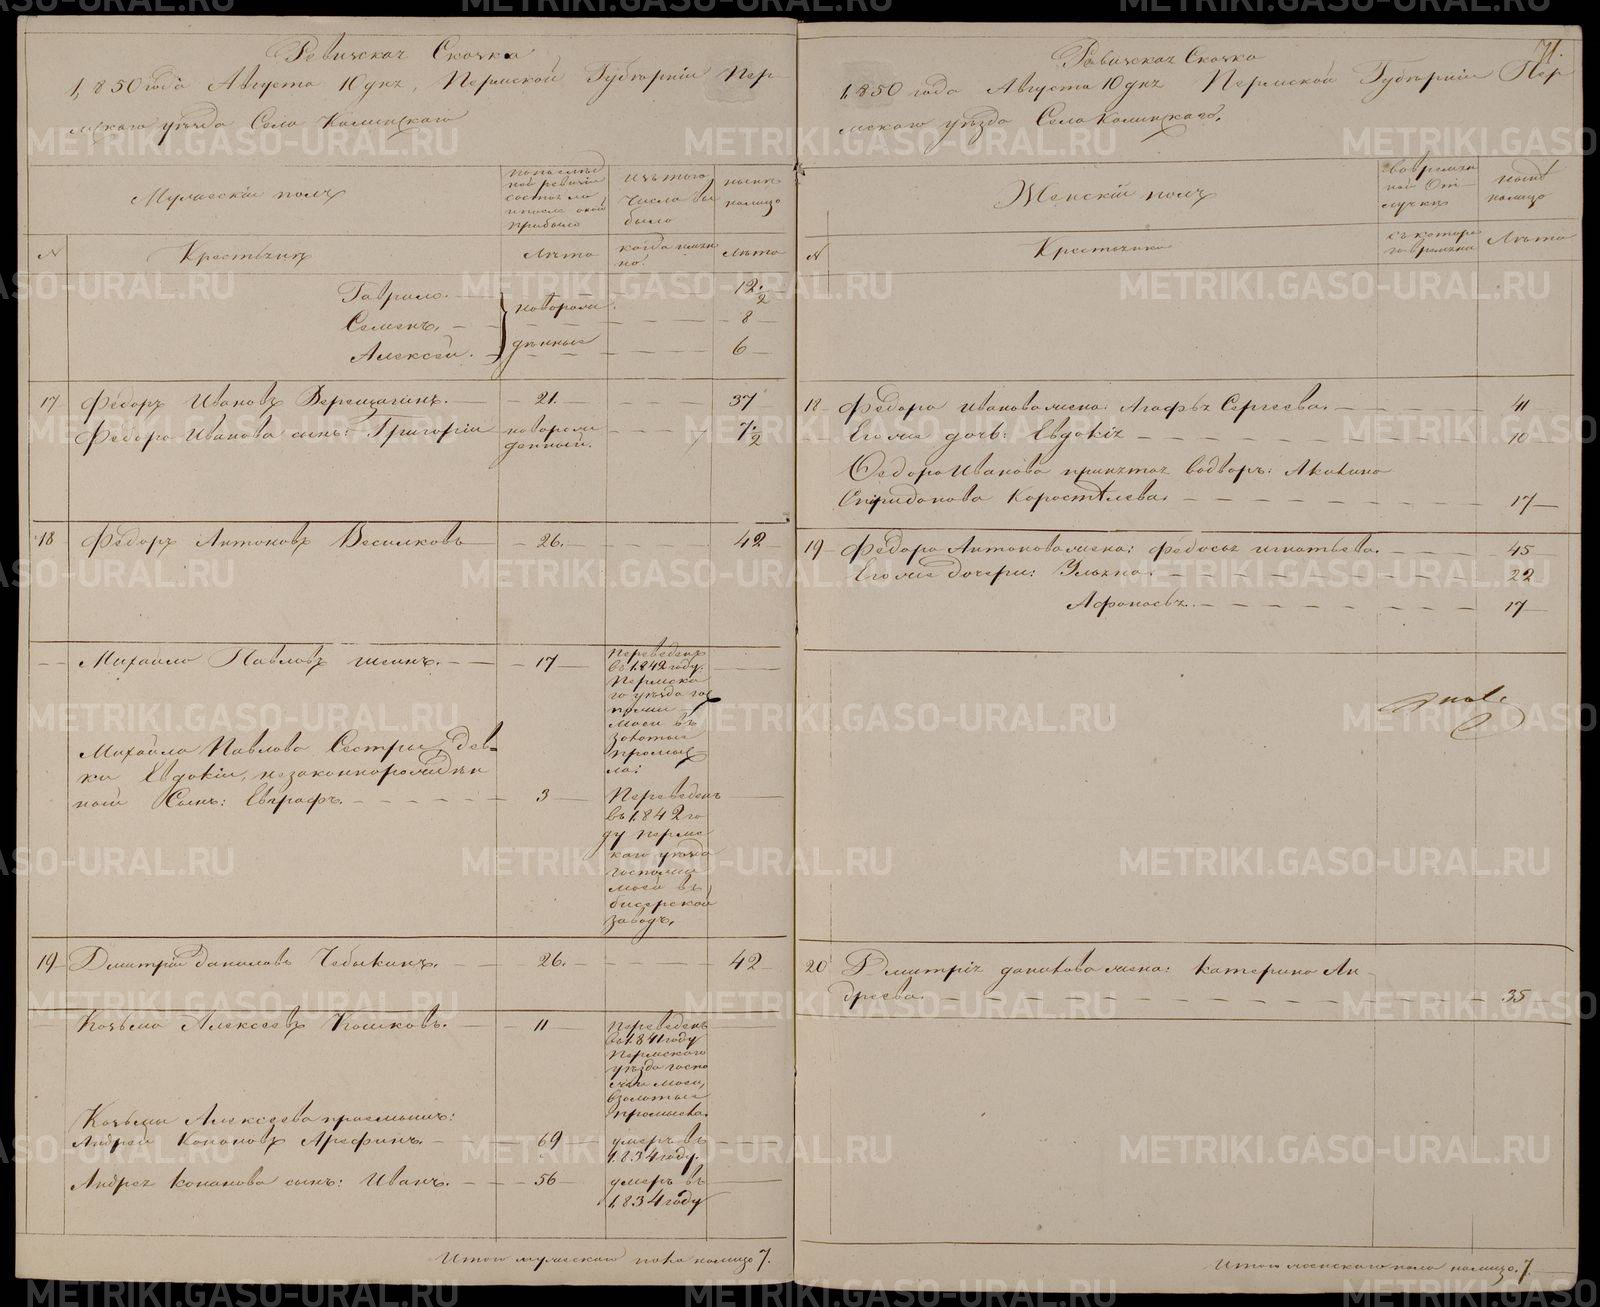 Ревизская Сказка
1,850 года Августа 10 дня, Пермской Губернiи Пер-
мскаго уѣзда Села Калинскаго
Мужескiй полъ
по послѣд-
ной ревизiи
состояло
и после оной
прибыло
изъ того
числа вы
было
ныне
налицо
№
Крестьяне
Лѣта
когда имян
но.
Лѣта
Гаврило. 12 1/2
Семенъ. новорож 8
Алексей. денные 6
17 Федоръ Ивановъ Верещагинъ. 21. 37
Федора Иванова сынъ: Григорiй новорож
денный. 7 1/2
18 Федоръ Антоновъ Веселковъ 26. 42
Михайло Павловъ 17 Переведенъ
въ 1,842 году
Пермска
го уѣзда гос
пожи
моей въ
золотые
промыс
ла:
Михайла Павлова Сестры, дев-
ки Евдокiи, незаконнорожден
ной Сынъ: Евграфъ. 3 Переведенъ
въ 1,842 го
ду Пермс
каго уѣзда
госпожи
моей въ
бисерской
заводъ.
19 Дмитрiй Даниловъ Чебыкинъ. 26. 42
Козьма Алексеевъ Кошковъ. 11 Переведенъ
въ 1,841 году
Пермскаго
уѣзда госпо
жи моей,
в золотые
промысла.
Козьмы Алексеева праемышъ:
Андрей Конановъ Арефинъ. 69 умеръ въ
1,834 году.
Андрея Конанова сынъ: Иванъ. 56 умеръ въ
1,834 году
Итого мужескаго пола налицо 7.
71.
Ревизская Сказка
1,850 года Августа 10 дня Пермской Губернiи Пер
мскаго уѣзда Села Калинскаго.
Женскiй полъ
во времян
ной от-
лучкѣ
ныне
налицо
№
Крестьянки
съ котора
го времяни
Лѣта
18 Федора Иванова жена: Агафья Сергеева. 41
Его же дочь: Евдокiя 10
Федора Иванова принятая во дворъ: Акилина
Спиридонова Коростелева. 17
19 Федора Антонова жена: Федосья Игнатьева. 45
Его же дочери: Ульяна. 22
Афанасья. 17
20 Дмитрiя Данилова жена: Катерина Ан
дреева. 35
Итого женскаго пола налицо. 7.
METRIKI.GASO-URAL.RU